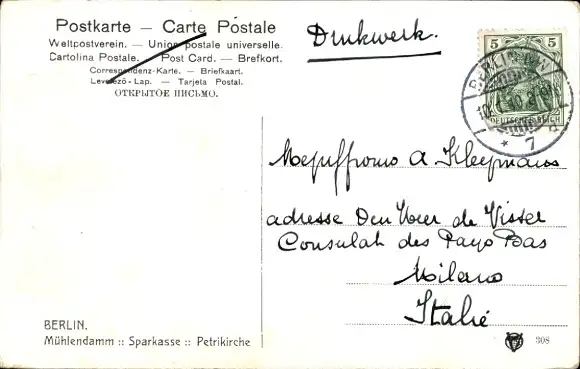 Postkarte — Carte Postale
Weltpostverein. — Union postale universelle.
Cartolina Postale. — Post Card. — Brefkort.
Correspondenz-Karte. — Briefkaart.
Levelező-Lap. — Tarjeta Postal.
ОТКРЫТОЕ ПИСЬМО.
Drukwerk.
5 5
DEUTSCHES REICH
BERLIN
* 7
Mejuffrouw A Kleijmans
adresse Den Heer de Visser
Consulat des Pays Bas
Milano
Italië
BERLIN.
Mühlendamm :: Sparkasse :: Petrikirche
308